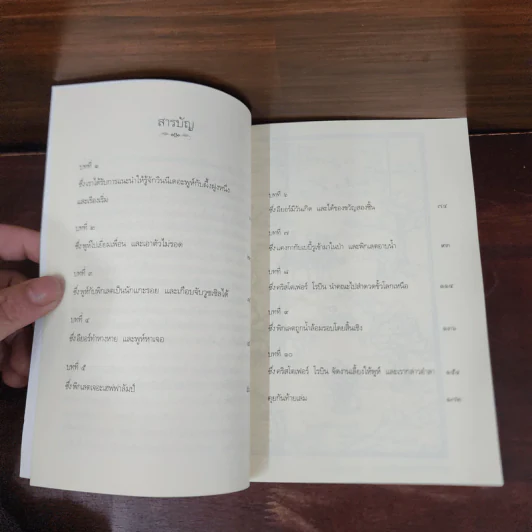 สารบัญ
บทที่ ๑
ซึ่งเราได้รับการแนะนำให้รู้จักวินนีเดอะพูห์กับผึ้งฝูงหนึ่ง
และเรื่องเริ่ม
บทที่ ๒
ซึ่งพูห์ไปเยี่ยมเพื่อน และเอาตัวไม่รอด
บทที่ ๓
ซึ่งพูห์กับพิกเลตเป็นนักแกะรอย และเกือบจับวูซเซิลได้
บทที่ ๔
ซึ่งอียอร์ทำหางหาย และพูห์หาเจอ
บทที่ ๕
ซึ่งพิกเลตเจอะเฮฟฟาลัมป์
บทที่ ๖
ซึ่งอียอร์มีวันเกิด และได้ของขวัญสองชิ้น ๗๔
บทที่ ๗
ซึ่งแคงกากับเบบี้รูเข้ามาในป่า และพิกเลตอาบน้ำ
บทที่ ๘
ซึ่งคริสโตเฟอร์ โรบิน นำคณะไปสำรวจขั้วโลกเหนือ
บทที่ ๙
ซึ่งพิกเลตถูกน้ำล้อมรอบโดยสิ้นเชิง
บทที่ ๑๐
ซึ่งคริสโตเฟอร์ โรบิน จัดงานเลี้ยงให้พูห์ และเรากล่าวอำลา
คุยกันท้ายเล่ม